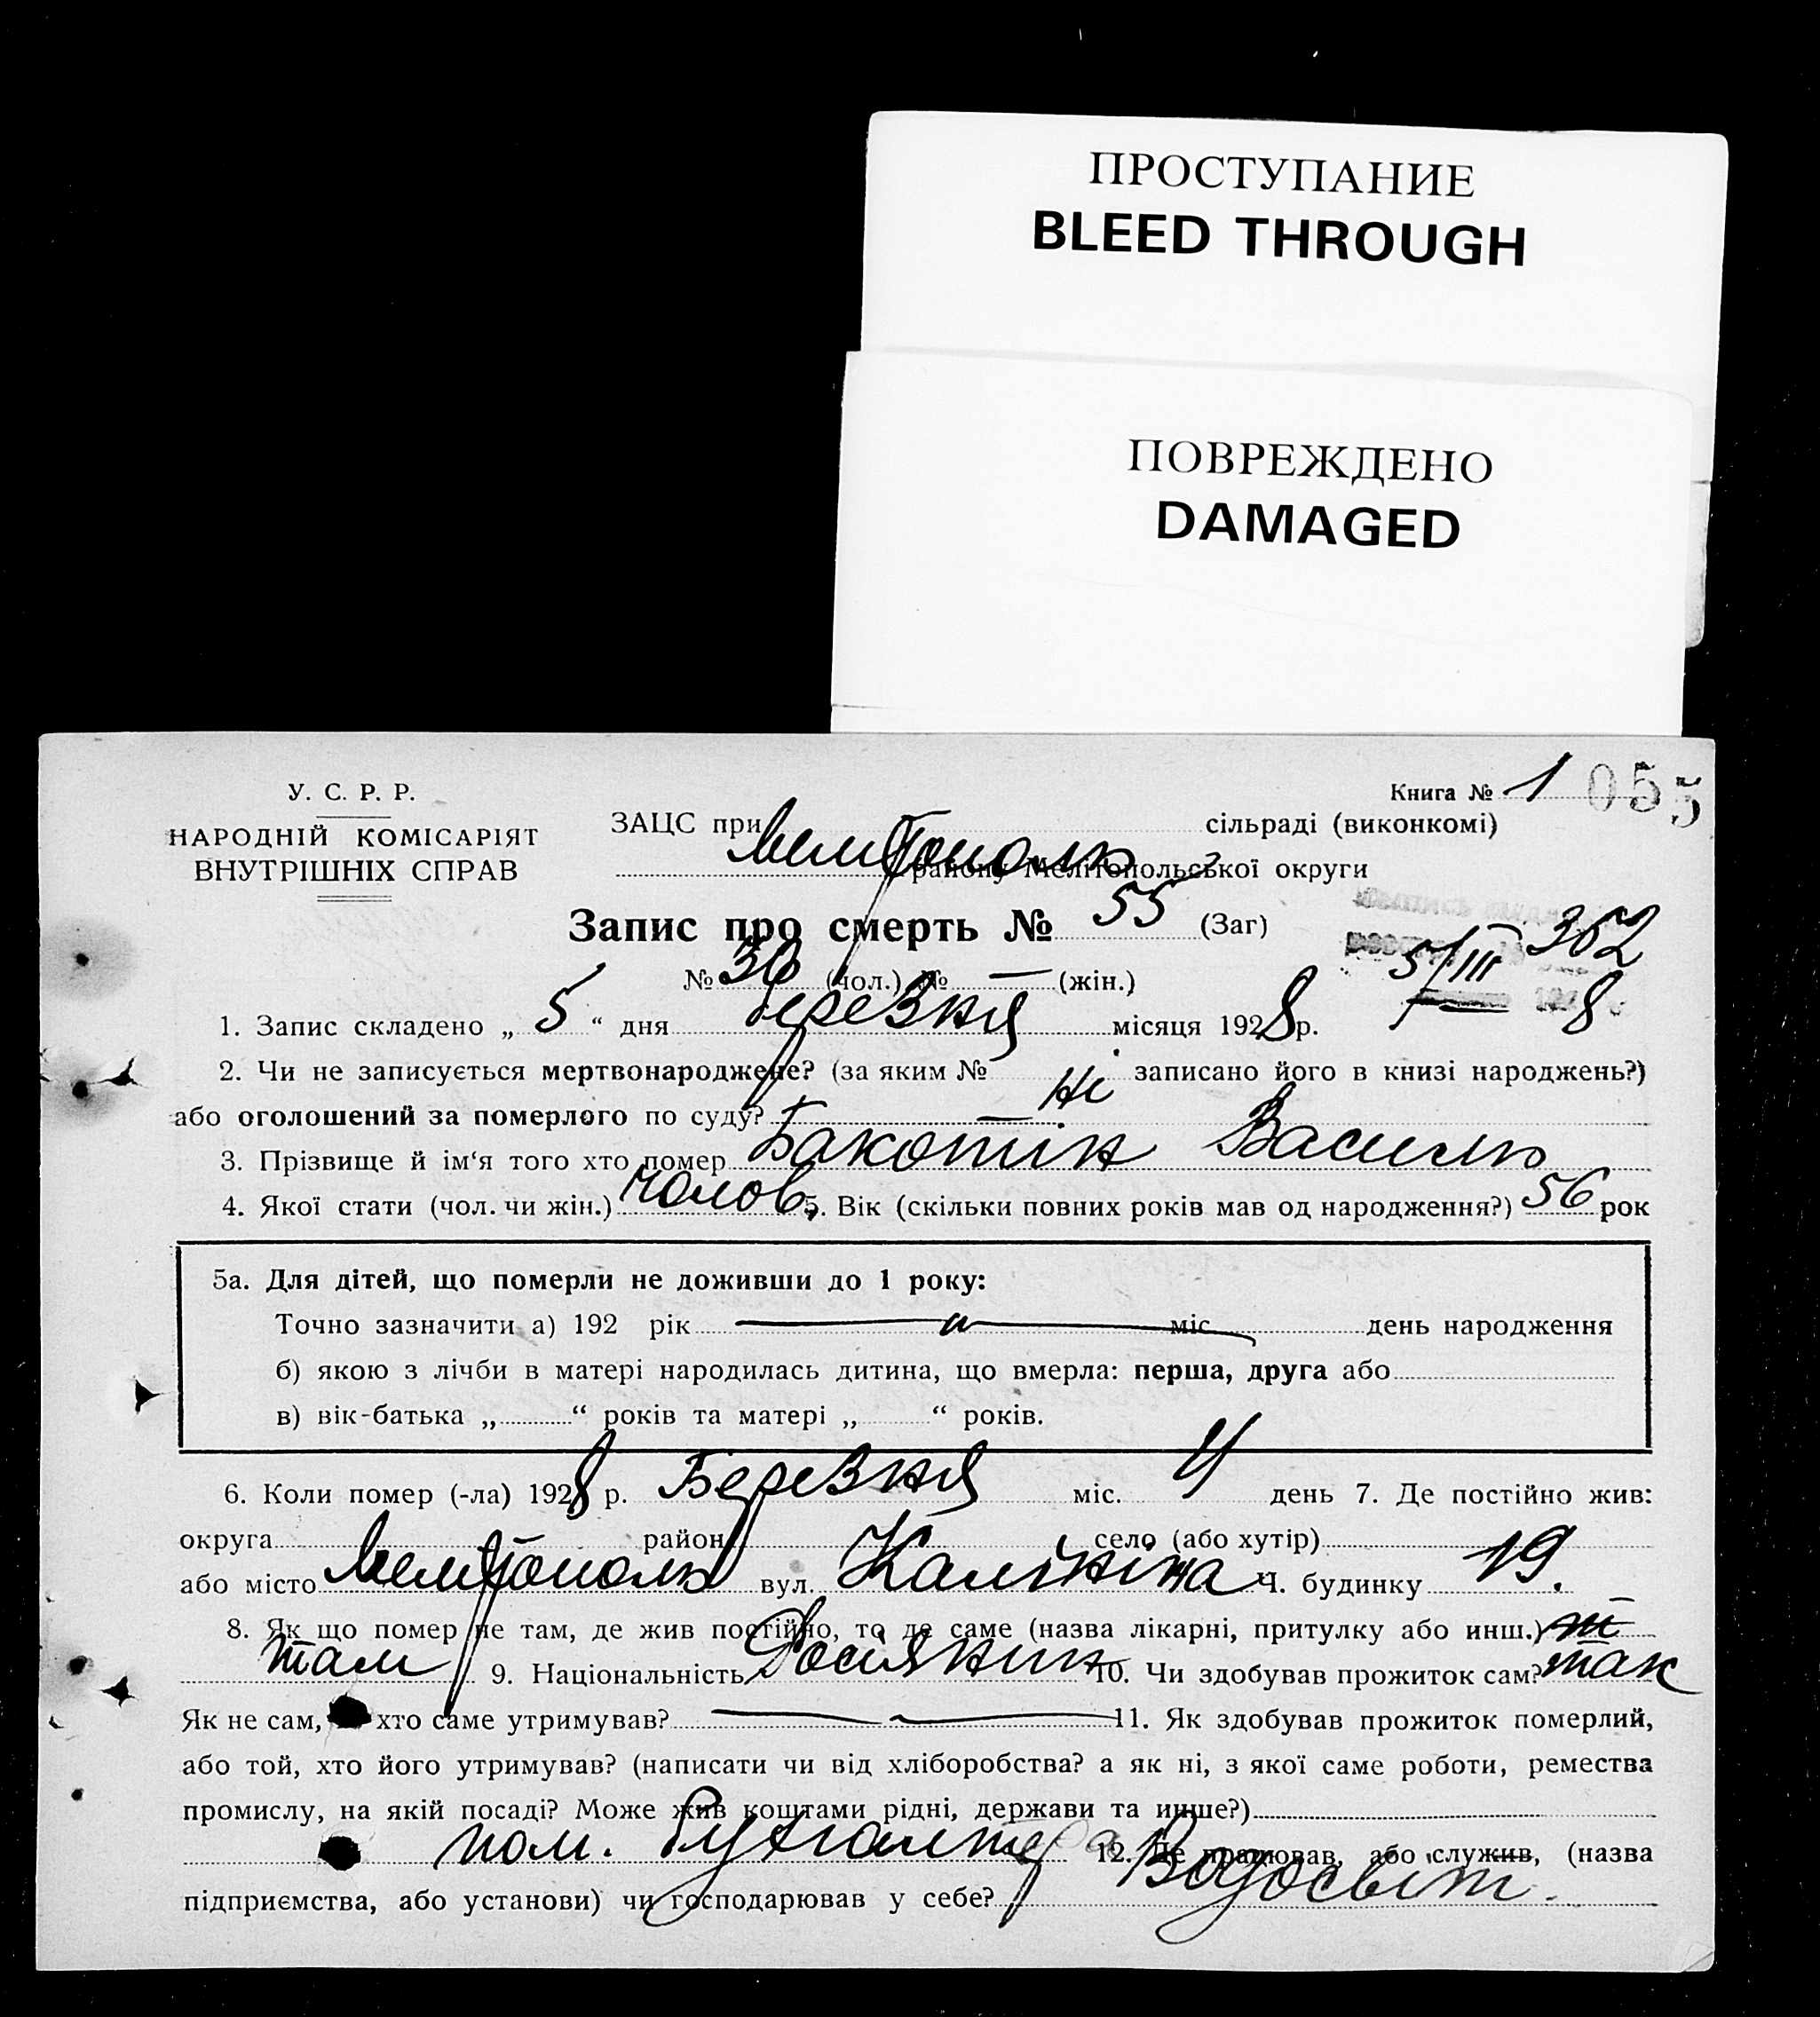 ПРОСТУПАНИЕ
BLEED THROUGH
ПОВРЕЖДЕНО
DAMAGED
У. С. Р. Р.
НАРОДНІЙ КОМІСАРІЯТ
ВНУТРІШНІХ СПРАВ
Книга № 1 055
ЗАЦС при Мелітополь сільраді (виконкомі)
району Мелітопольської округи
Запис про смерть № 55 (Заг)
5/III 8 362
№ 36 (чол.) № — (жін.)
1. Запис складено „ 5 “ дня березня місяця 1928 р.
2. Чи не записується мертвонароджене? (за яким № Ні записано його в книзі народжень?)
або оголошений за померлого по суду? —
3. Прізвище й ім‘я того хто помер Бакотін Василь
4. Якої стати (чол. чи жін.) чолов. 5. Вік (скільки повних років мав од народження?) 56 рок
5а. Для дітей, що померли не доживши до 1 року:
Точно зазначити а) 192 рік міс. день народження
б) якою з лічби в матері народилась дитина, що вмерла: перша, друга або
в) вік-батька „ “ років та матері „ “ років.
6. Коли помер (-ла) 1928 р. Березня міс. 4 день 7. Де постійно жив:
округа район село (або хутір)
або місто Мелітополь вул. Калініна Ч. будинку 19.
8. Як що помер не там, де жив постійно, то де саме (назва лікарні, притулку або инш.)
там 9. Національність Росіянин 10. Чи здобував прожиток сам? так
Як не сам, хто саме утримував? — 11. Як здобував прожиток померлий,
або той, хто його утримував? (написати чи від хліборобства? а як ні, з якої саме роботи, ремества
промислу, на якій посаді? Може жив коштами рідні, держави та инше?)
пом. бухгалтера 12. Де працював, або служив, (назва
підприємства, або установи) чи господарював у себе? Водосвіт.